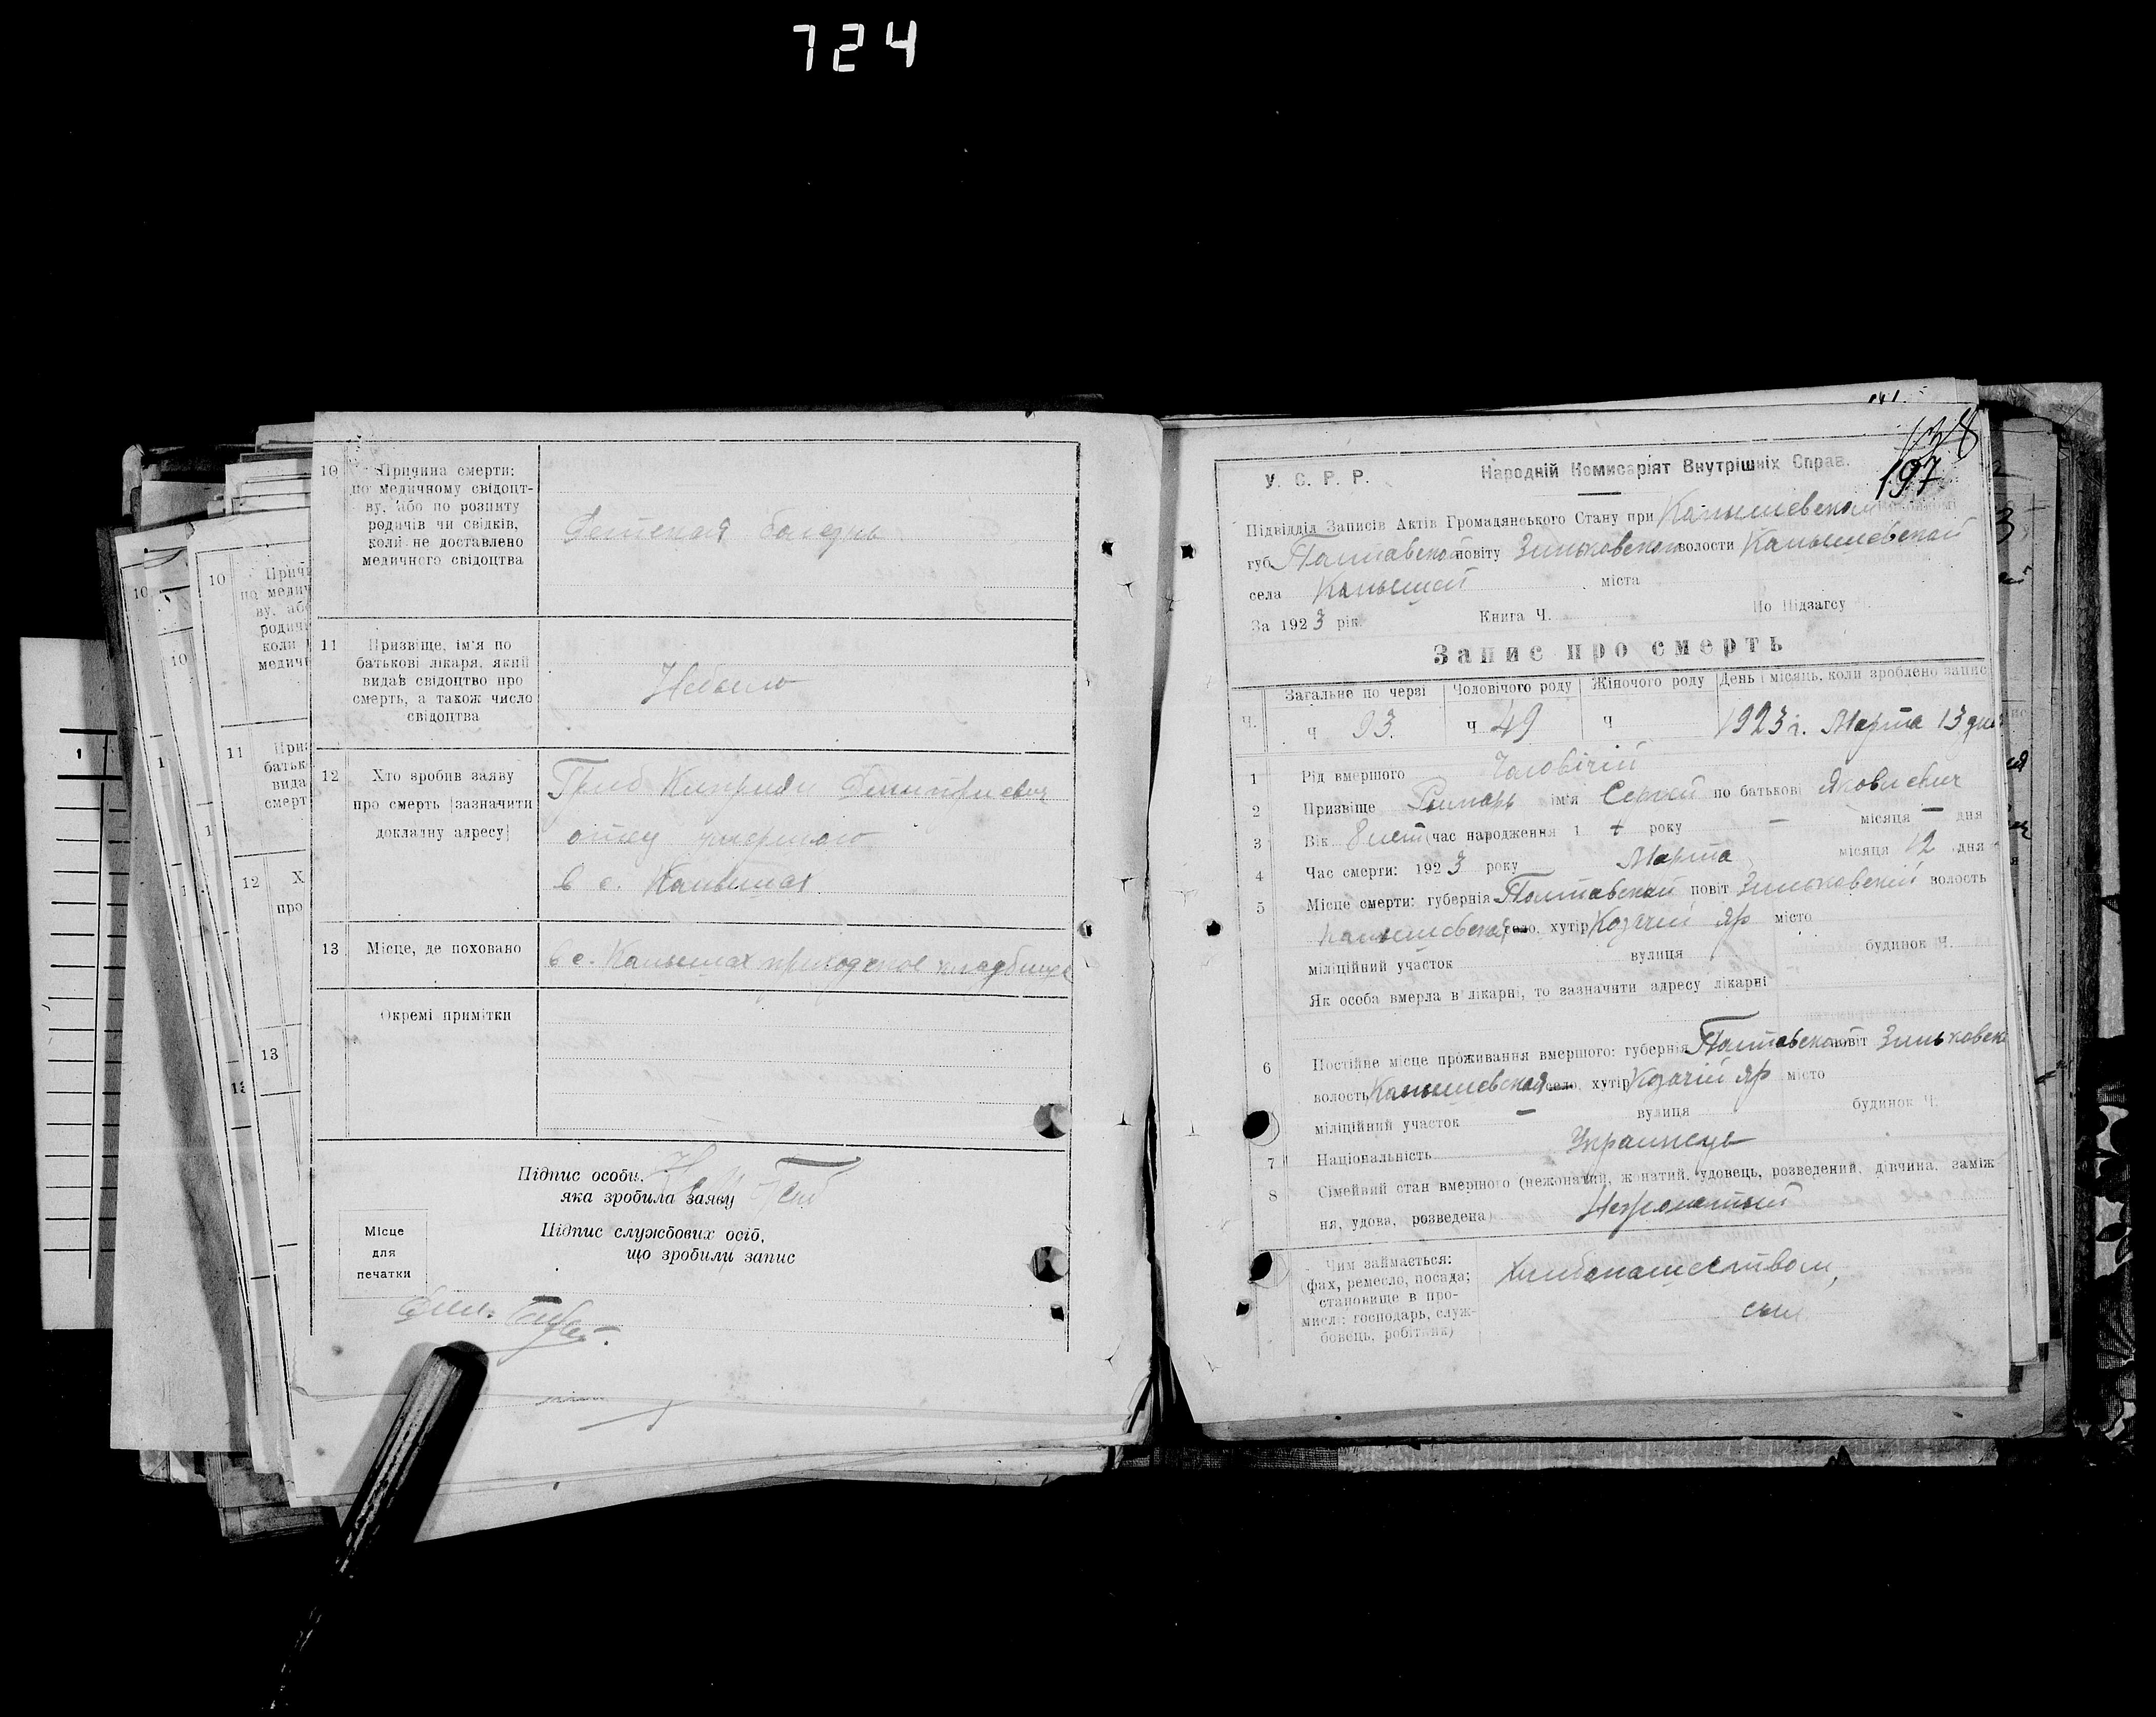 724
10 Причина смерти:
по медичному свідоцт-
ву, або по розпиту
родичів чи свідків,
коли не доставлено
медичного свідоцтва
Детская болезнь
11 Призвіще, ім'я по
батькові лікаря, який
видав свідоцтво про
смерть, а також число
свідоцтва
Небыло
12 Хто зробив заяву
про смерть (зазначити
докладну адресу)
Гриб Киприян Дмитриевич
отец умершаго
в с. Камышах
13 Місце, де поховано
в с. Камышах приходское кладбище
Окремі примітки
Підпис особи,
яка зробила заяву
Підпис службових осіб,
що зробили запис
Місце
для
печатки
138
197
У. С. Р. Р. Народній Комисаріят Внутрішніх Справ.
Підвідділ Записів Актів Громадянського Стану при Камышевском
губ. Полтавской повіту Зиньковского волости Камышевской
села Камышей міста
За 1923 рік. Книга Ч. По Підзагсу
Запис про смерть
Ч. Загальне по черзі Чоловічого роду Жіночого роду День і місяць, коли зроблено запис
ч 93. ч 49 ч 1923 г. Марта 13 дня
1 Рід вмершого Чоловічій
2 Призвіще Рымарь ім'я Сергей по батькові Яковлевич
3 Вік 8 лет (час народження 1 + року — місяця — дня
4 Час смерти: 1923 року Марта місяця 12 дня
5 Місце смерти: губернія Полтавской повіт Зиньковский волость
Камышевская село, хутір Козачий Яр місто
міліційний участок вулиця будинок Ч.
Як особа вмерла в лікарні, то зазначити адресу лікарні
6 Постійне місце проживання вмершого: губернія Полтавской повіт Зиньковск
волость Камышевская село, хутір Козачий Яр місто
міліційний участок — вулиця будинок Ч.
7 Національність Украинец
8 Сімейний стан вмершого (нежонатий, жонатий, удовець, розведений, дівчина, заміж-
ня, удова, розведена) Нежонатый
Чим займається:
(фах, ремесло, посада;
становище в про-
мислі: господарь, служ-
бовець, робітник)
Хлебопашеством,
сын